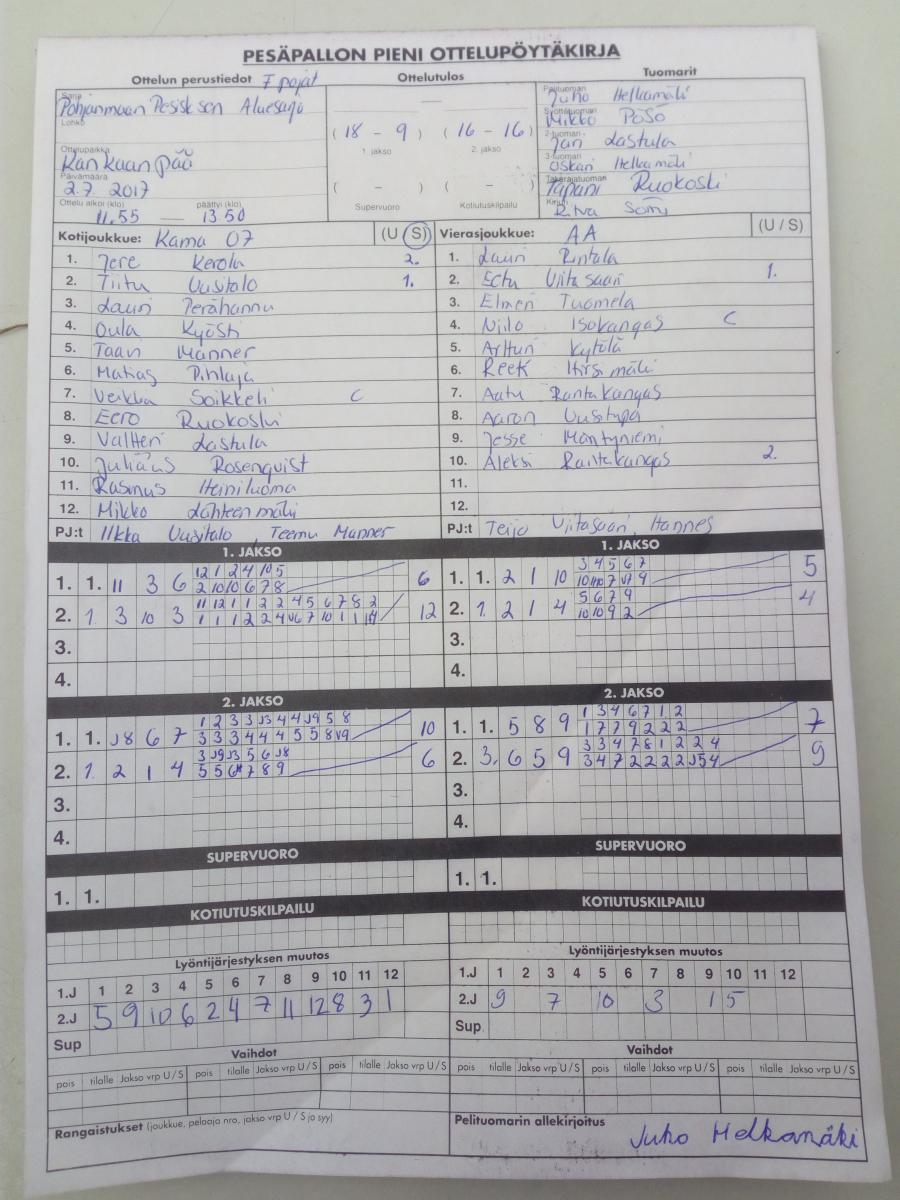 PESÄPALLON PIENI OTTELUPÖYTÄKIRJA
Ottelun perustiedot F pojat
Ottelutulos
Tuomarit
Sarja
Pohjanmaan Pesis ksen Aluesarja
Lohko
Ottelupaikka
Kankaanpää
Päivämäärä
2.7. 2017
Ottelu alkoi (klo) päättyi (klo)
11.55 — 13 50
—
( 18 - 9 ) ( 16 - 16 )
1. jakso 2. jakso
( - ) ( - )
Supervuoro Kotiutuskilpailu
Pelituomari
Juho Helkamäki
Syöttötuomari
Mikko Poso
2-tuomari
Jan Lastula
3-tuomari
Oskari Helkamäki
Takarajatuomari
Tapani Ruokoski
Kirjuri
Ritva Somi
Kotijoukkue: Kama 07 (U / S)
1. Jere Kerola 2.
2. Tiitu Uusitalo 1.
3. Lauri Perähannu
4. Oula Kyösti
5. Taavi Manner
6. Matias Pihlaja
7. Veikka Soikkeli C
8. Eero Ruokoski
9. Valtteri Lastula
10. Julius Rosenqvist
11. Rasmus Heiniluoma
12. Mikko Lähteenmäki
PJ:t Ilkka Uusitalo, Teemu Manner
Vierasjoukkue: AA (U / S)
1. Lauri Rintala
2. Eetu Viitasaari 1.
3. Elmeri Tuomela
4. Niilo Isokangas C
5. Artturi Kytölä
6. Reek Hirsimäki
7. Aatu Rantakangas
8. Aaron Uusitupa
9. Jesse Mäntyniemi
10. Aleksi Rantakangas 2.
11.
12.
PJ:t Teijo Viitasaari, Hannes
1. JAKSO
1. 1. 11 3 6 12 1 2 4 10 5 6
2 10 10 6 7 8
2. 1. 3 10 3 11 12 1 1 2 2 4 5 6 7 8 2 12
3.
4.
1. JAKSO
1. 1. 2 1 10 3 4 5 6 7 5
2. 1. 2 1 4 5 6 7 9 4
10 10 9 2
3.
4.
2. JAKSO
1. 1. J8 6 7 1 2 3 3 J3 4 4 J9 5 8 10
3 3 3 4 4 4 5 5 8 V9
2. 1. 2 1 4 3 J9 J3 5 6 J8 6
3.
4.
2. JAKSO
1. 1. 5 8 9 1 3 4 6 7 1 2 7
1 7 7 9 2 2 2
2. 3. 6 5 9 3 3 4 7 8 1 2 2 4 9
3 4 7 2 2 2 2 J5 4
3.
4.
SUPERVUORO
1. 1.
SUPERVUORO
1. 1.
KOTIUTUSKILPAILU
KOTIUTUSKILPAILU
Lyöntijärjestyksen muutos
1.J 1 2 3 4 5 6 7 8 9 10 11 12
2.J 5 9 10 6 2 4 7 11 12 8 3 1
Sup
Lyöntijärjestyksen muutos
1.J 1 2 3 4 5 6 7 8 9 10 11 12
2.J 9 7 10 3 1 5
Sup
Vaihdot
pois tilalle Jakso vrp U / S pois tilalle Jakso vrp U / S pois tilalle Jakso vrp U / S
Vaihdot
pois tilalle Jakso vrp U / S pois tilalle Jakso vrp U / S pois tilalle Jakso vrp U / S
Rangaistukset (joukkue, pelaaja nro, jakso vrp U / S ja syy)
Pelituomarin allekirjoitus
Juho Helkamäki